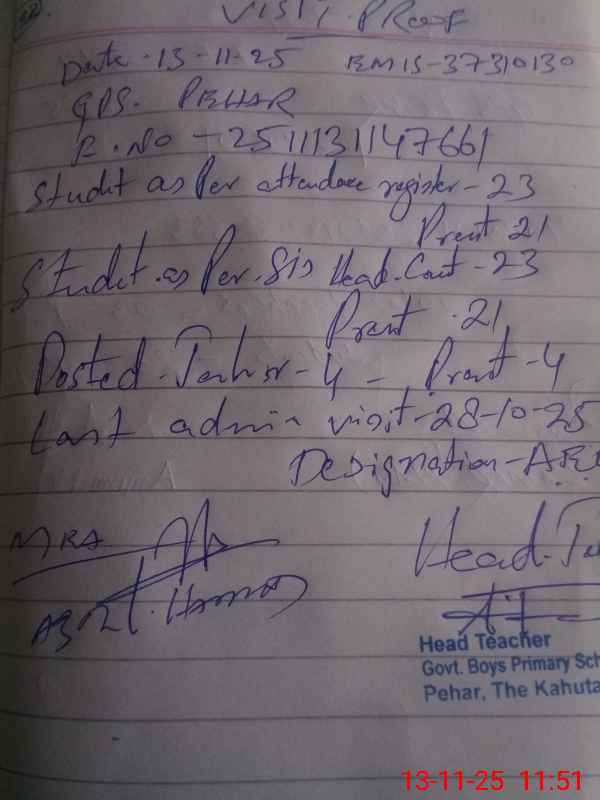 VISIT PROOF
Date - 13-11-25 EMIS-37310130
GPS. PEHAR
R.NO - 2511131147661
Studet as Per attendace register - 23
Presnt 21
Studet as Per Sis Head Cout - 23
Presnt 21
Posted Teachr - 4 - Presnt - 4
Last admin visit - 28-10-25
Designation - AE
MRA
Head
Head Teacher
Govt. Boys Primary Sch
Pehar, The Kahuta
13-11-25 11:51